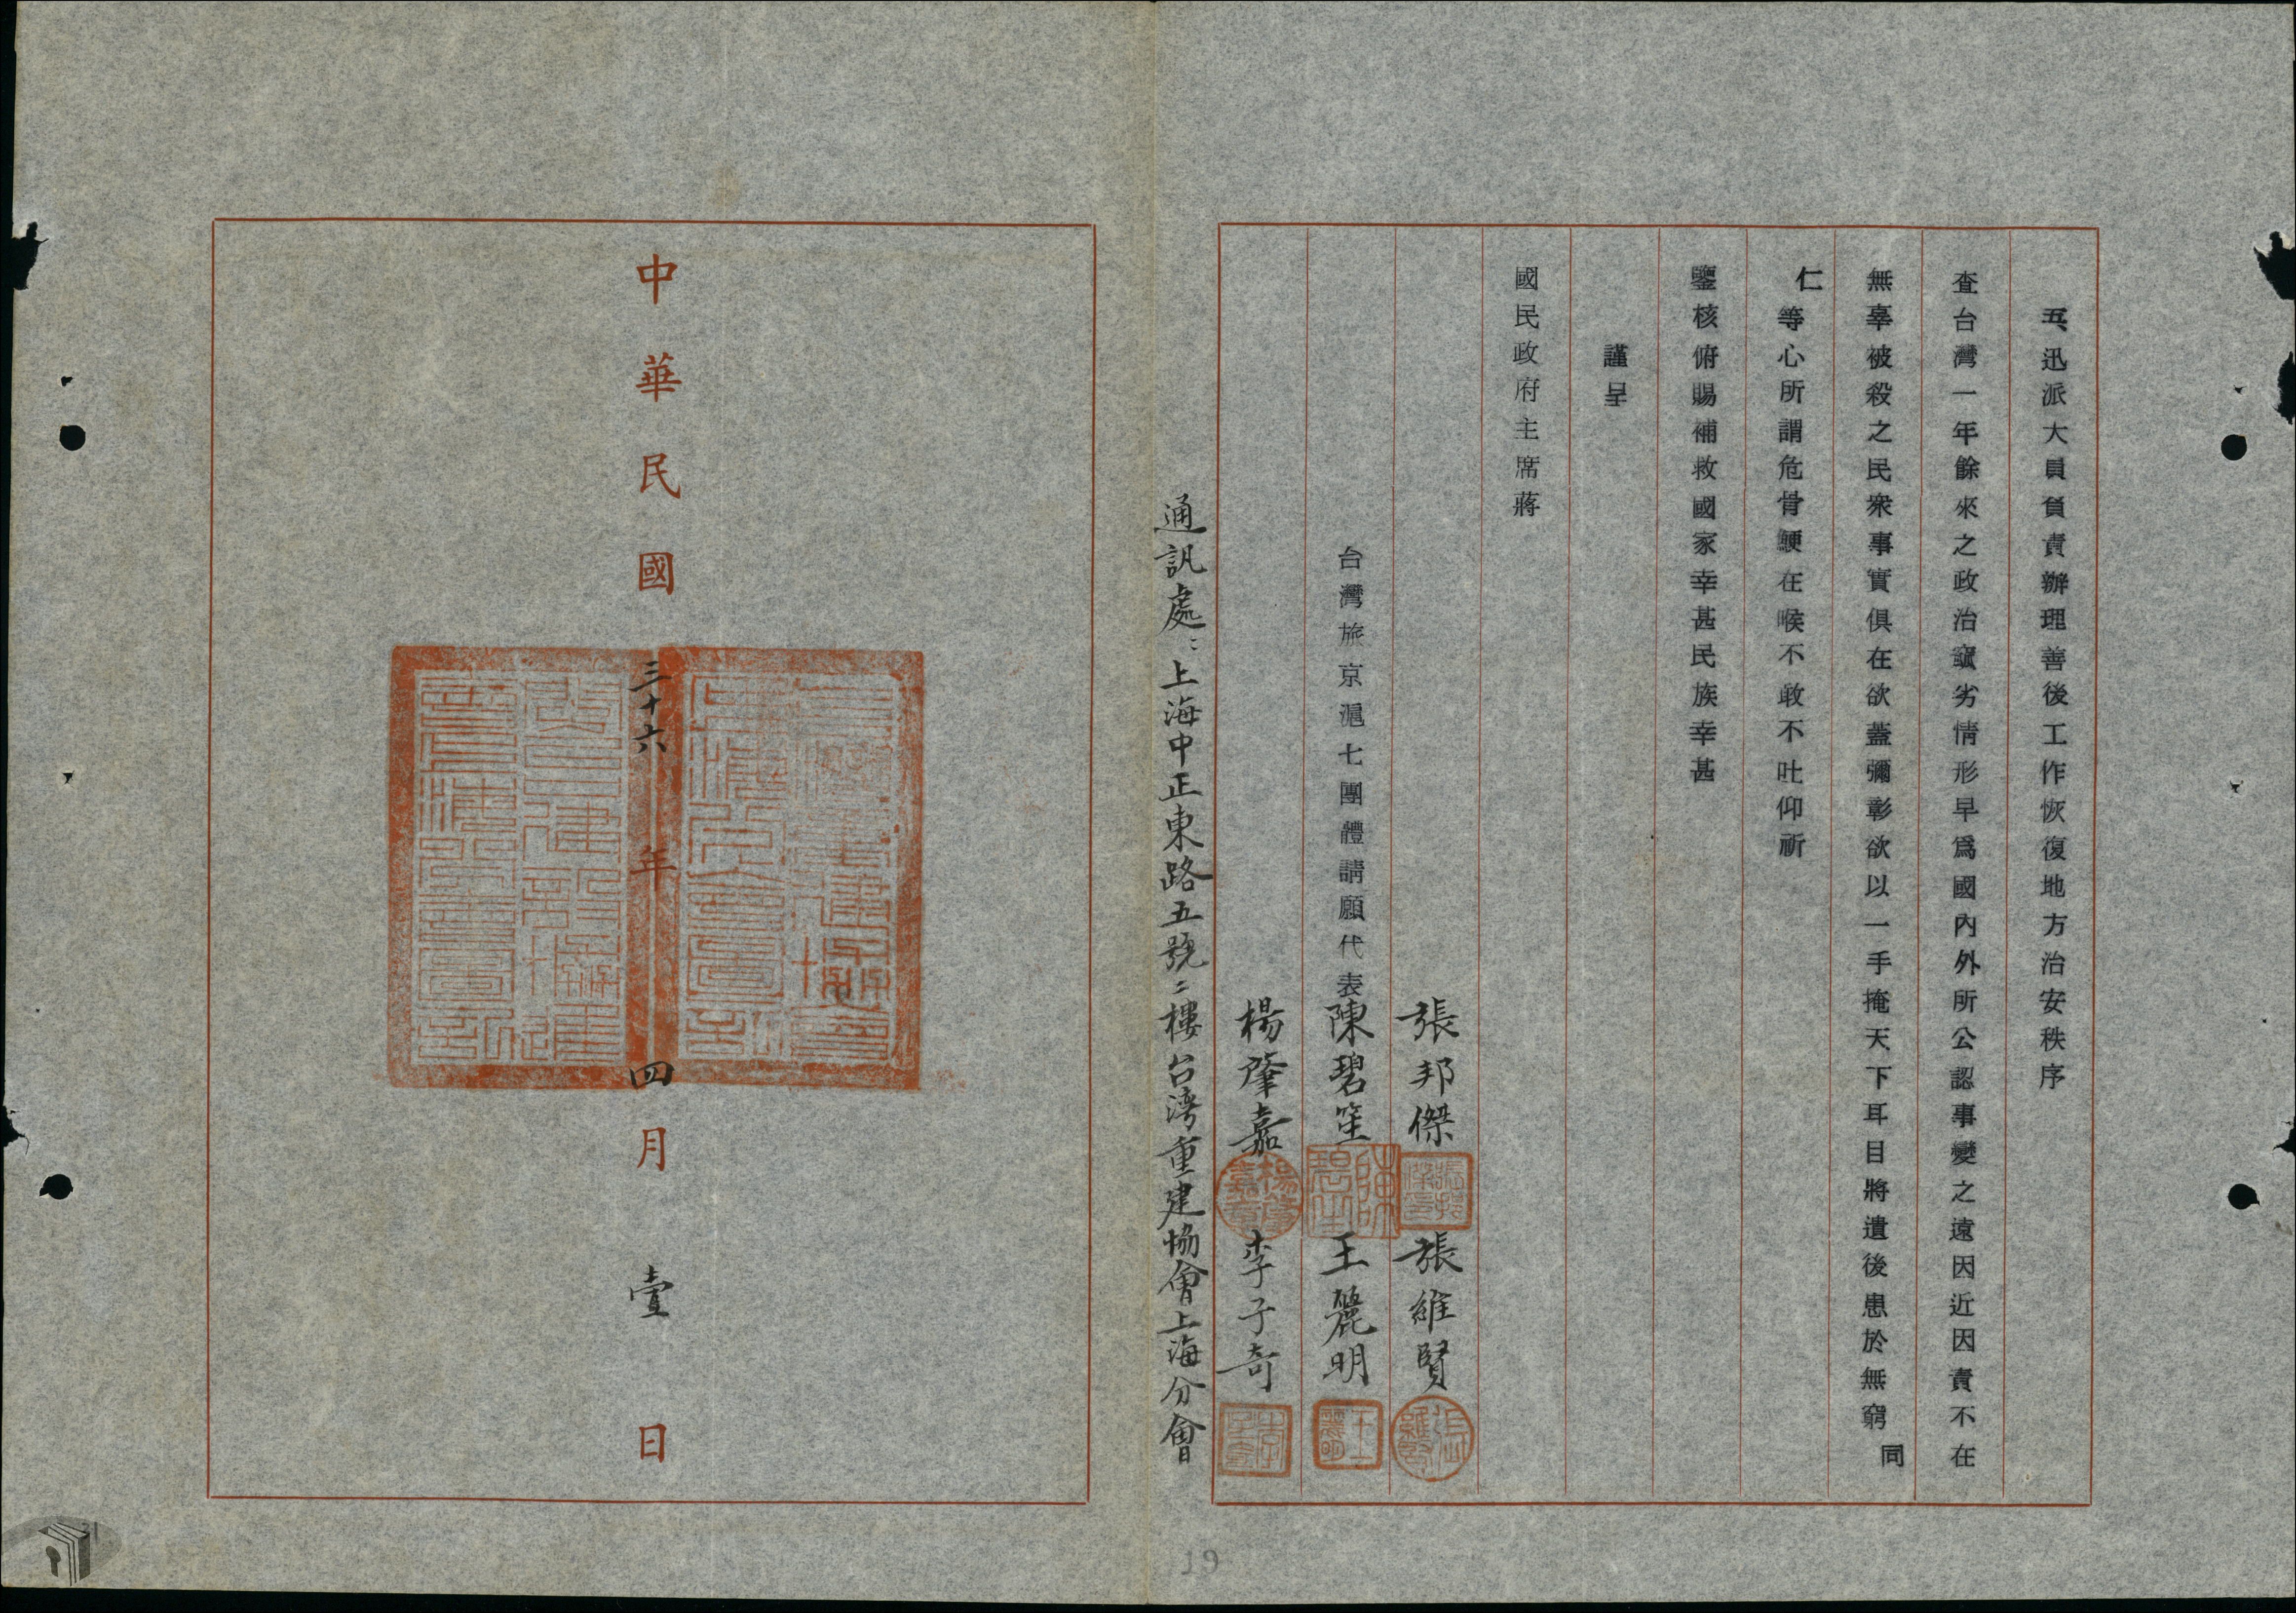 五、迅派大員負責辦理善後工作恢復地方治安秩序
查台灣一年餘來之政治竄劣情形早爲國內外所公認事變之遠因近因責不在
無辜被殺之民衆事實俱在欲蓋彌彰欲以一手掩天下耳目將遺後患於無窮同
仁等心所謂危骨鯁在喉不敢不吐仰祈
鑒核俯賜補救國家幸甚民族幸甚
謹呈
國民政府主席蔣
張邦傑 張維賢
台灣旅京滬七團體請願代表陳碧笙 王麗明
楊肇嘉 李子奇
通訊處：上海中正東路五號二樓台灣重建協會上海分會
中華民國三十六年四月壹日
19